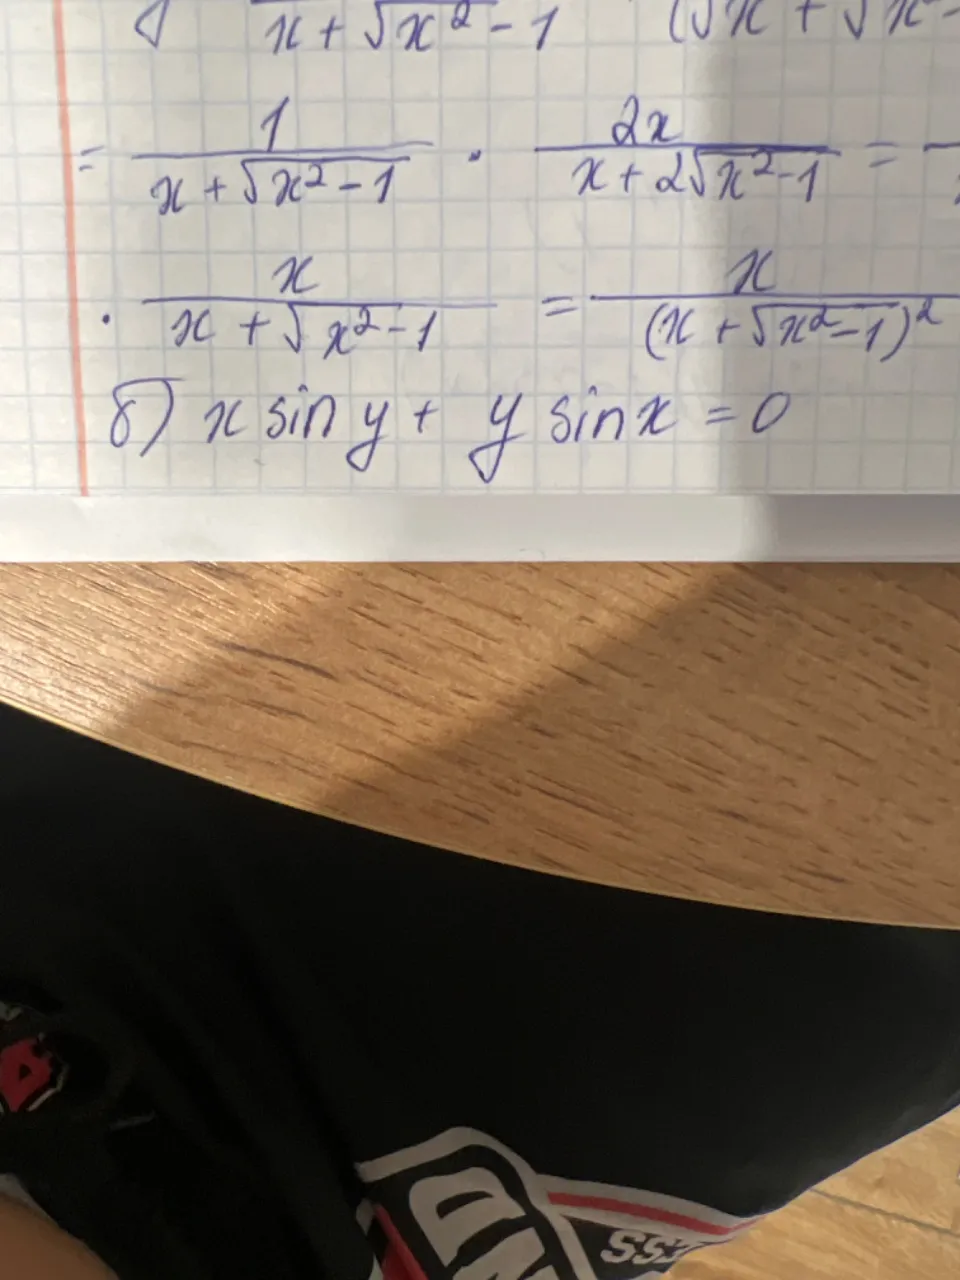 x + √x² - 1 (√x + √x
= 1 / (x + √(x² - 1)) · 2x / (x + 2√(x² - 1)) =
· x / (x + √(x² - 1)) = x / (x + √(x² - 1))²
б) x sin y + y sin x = 0